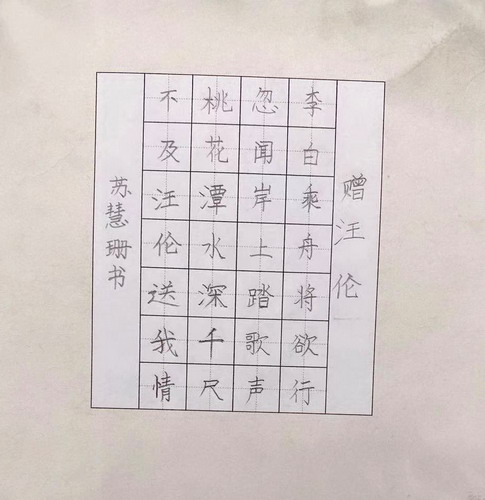 赠汪伦
李白乘舟将欲行
忽闻岸上踏歌声
桃花潭水深千尺
不及汪伦送我情
苏慧珊书